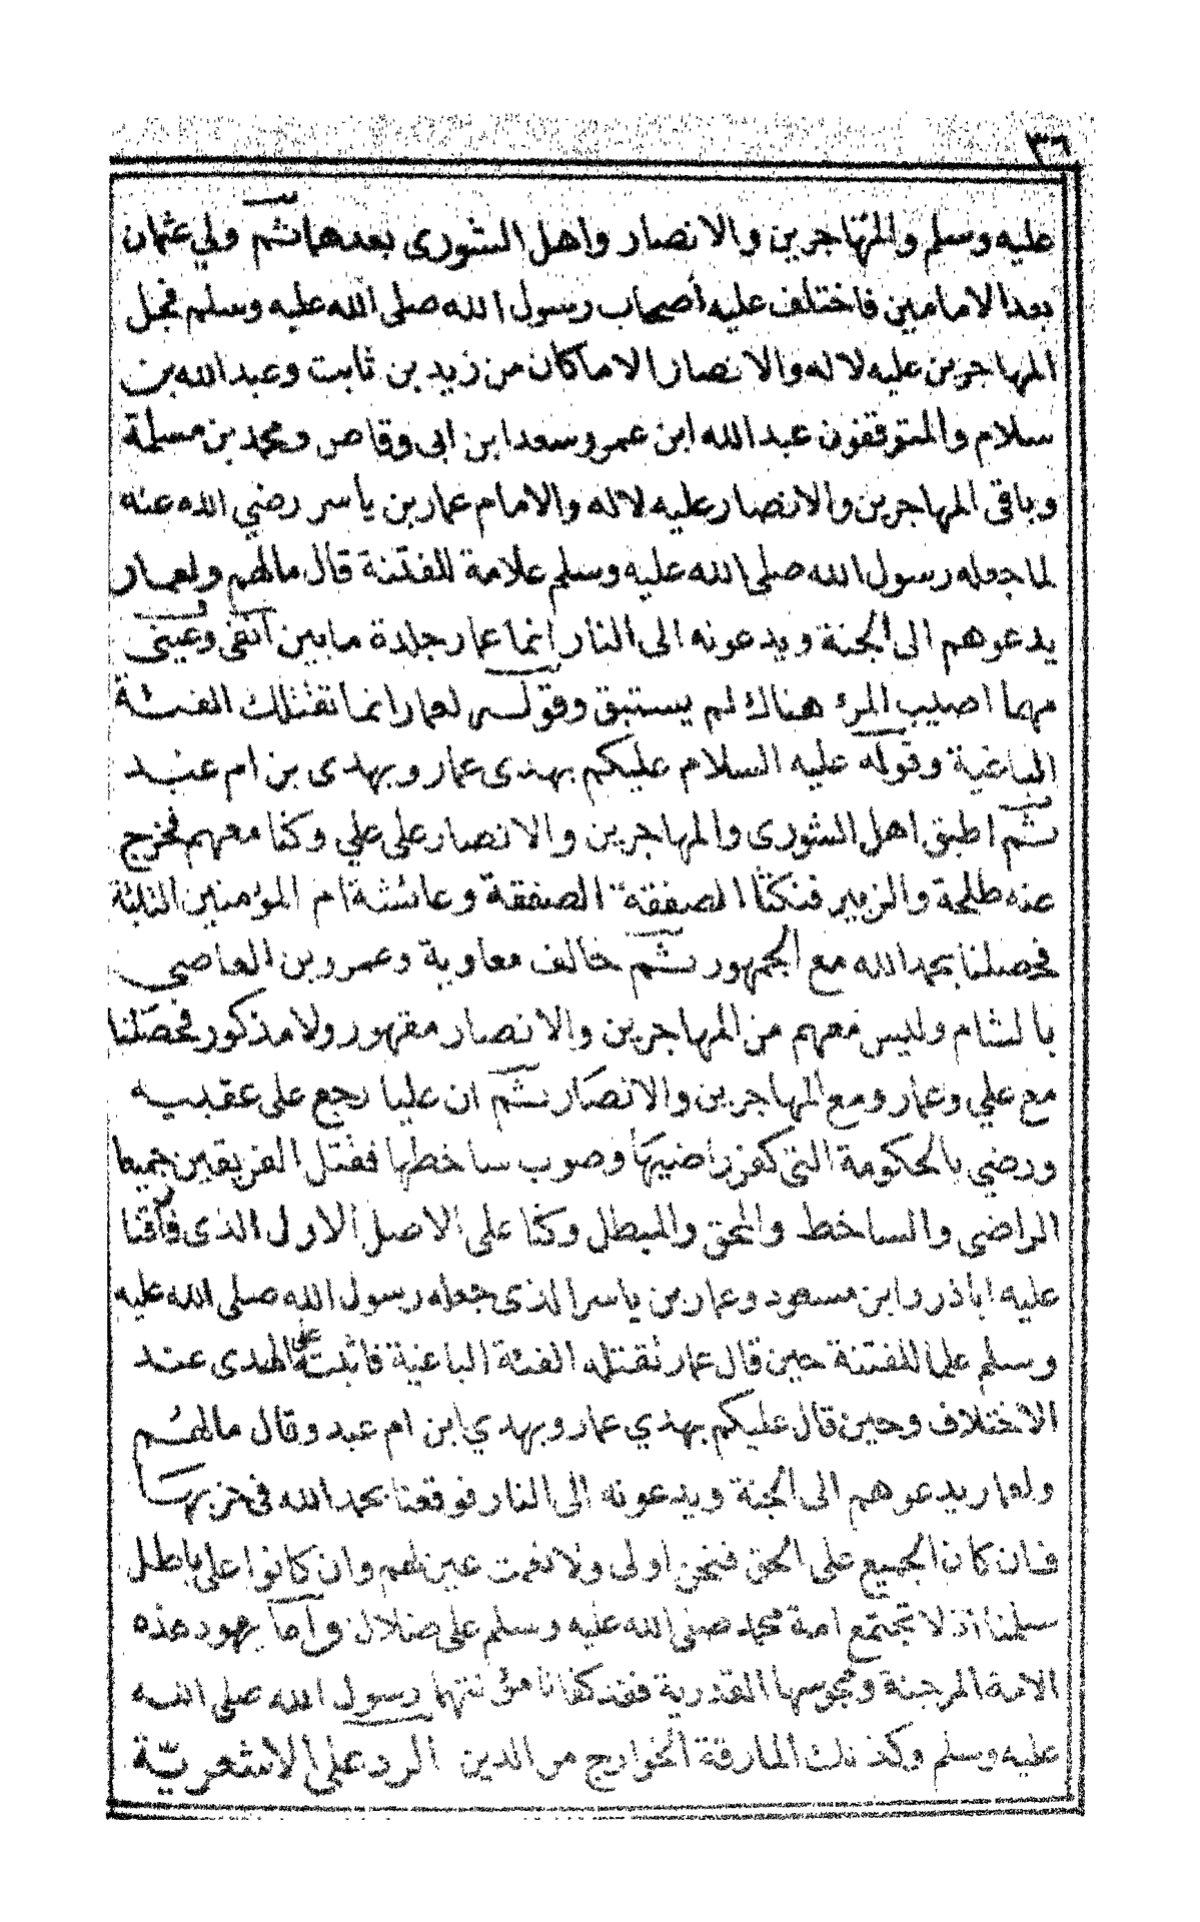 ٣٦
عليه وسلم والمهاجرين والانصار واهل الشورى بعدهما ثم ولي عثمان
بعد الامامين فاختلف عليه أصحاب رسول الله صلى الله عليه وسلم فجل
المهاجرين عليه لا له والانصار الا ما كان من زيد بن ثابت وعبد الله بن
سلام والمتوقفون عبد الله ابن عمر وسعد ابن ابى وقاص ومحمد بن مسلمة
وباقى المهاجرين والانصار عليه لا له والامام عمار بن ياسر رضي الله عنه
لما جعله رسول الله صلى الله عليه وسلم علامة للفتنة قال مالهم ولعمار
يدعوهم الى الجنة ويدعونه الى النار انما عمار جلدة ما بين انفى وعينى
مهما اصيب المرء هناك لم يستبق وقوله لعمار انما تقتلك الفئة
الباغية وقوله عليه السلام عليكم بهدى عمار وبهدى بن ام عبد
ثم اطبق اهل الشورى والمهاجرين والانصار على علي وكنا معهم فخرج
عنه طلحة والزبير فنكثا الصفقة الصفقة وعائشة ام المؤمنين الثلثة
فحصلنا بحمد الله مع الجمهور ثم خالف معاوية وعمرو بن العاصي
بالشام وليس معهم من المهاجرين والانصار مقهور ولا مذكور فحصلنا
مع علي وعمار ومع المهاجرين والانصار ثم ان عليا رجع على عقبيه
ورضي بالحكومة التى كفر راضيها وصوب ساخطها فقتل الفريقين جميعا
الراضى والساخط والمحق والمبطل وكنا على الاصل الاول الذى فارقنا
عليه اباذر وابن مسعود وعمار بن ياسر الذى جعله رسول الله صلى الله عليه
وسلم علما للفتنة حين قال عمار تقتله الفئة الباغية فاثبته على الهدى عند
الاختلاف وحين قال عليكم بهدي عمار وبهدي ابن ام عبد وقال مالهم
ولعمار يدعوهم الى الجنة ويدعونه الى النار فوقعنا بحمد الله فى حزبهما
فان كان الجميع على الحق فنحن اولى ولا نعمت عين لهم وان كانوا على باطل
سلمنا اذ لا تجتمع امة محمد صلى الله عليه وسلم على ضلال واما يهود هذه
الامة المرجئة ومجوسها القدرية فقد كفانا مؤنتهما رسول الله صلى الله
عليه وسلم وكذلك المارقة الخوارج من الدين الرد على الاشعريّة